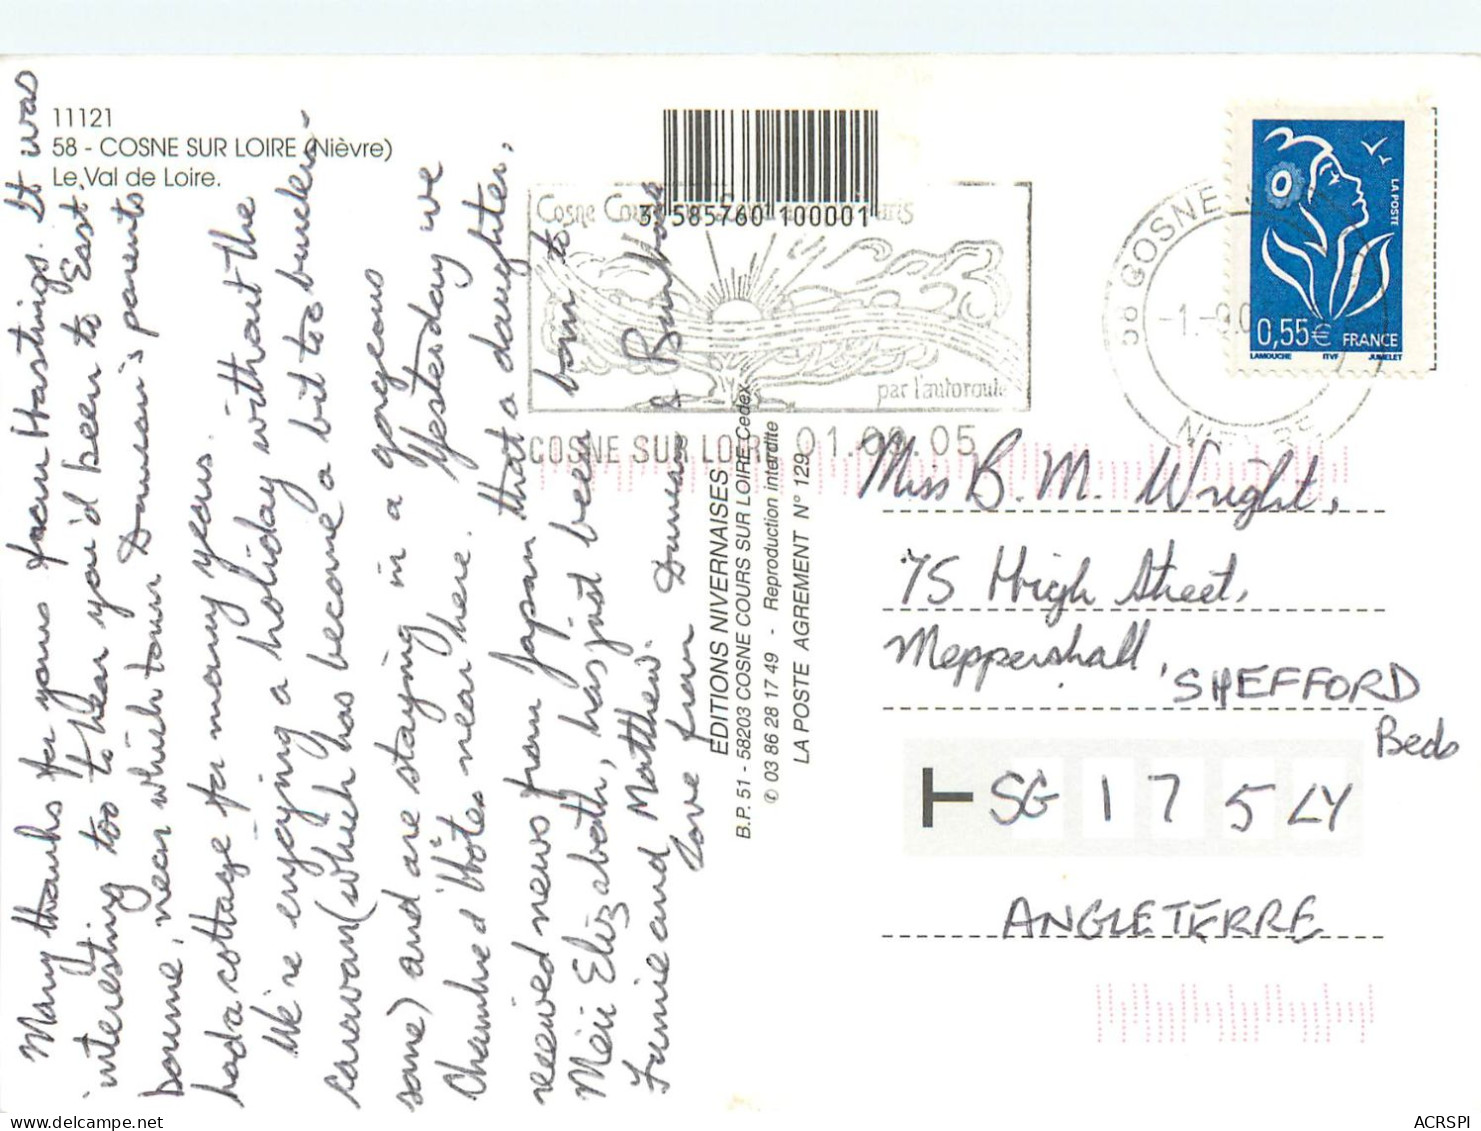 11121
58 - COSNE SUR LOIRE (Nièvre)
Le Val de Loire.
Many thanks for yours from Hastings. It was
interesting too to hear you'd been to East
bourne, near which town Duncan's parents
had a cottage for many years.
We're enjoying a holiday without the
caravan (which has become a bit too burden-
some) and are staying in a gorgeous
Chambre d'Hôte near here. Yesterday we
received news from Japan that a daughter,
Méii Elizabeth, has just been born to
Fumie and Matthew.
Love from Duncan & Barbara
3 585760 100001
Cosne Cours
par l'autoroute
COSNE SUR LOIRE 01.09.05
EDITIONS NIVERNAISES
B.P. 51 - 58203 COSNE COURS SUR LOIRE Cedex
✆ 03 86 28 17 49 - Reproduction interdite
LA POSTE AGREMENT N° 129
58 COSNE
NIEVRE
LA POSTE
0,55€ FRANCE
LAMOUCHE ITVF JUMELET
Miss B. M. Wright,
75 High Street,
Meppershall, SHEFFORD
Beds
SG 17 5LY
ANGLETERRE
delcampe.net
ACRSPI